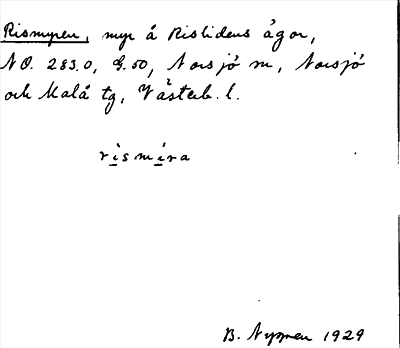 Rismyren, myr å Rislidens ägor,
NO. 283.0, G. 50, Norsjö sn, Norsjö
och Malå tg, Västerb. l.
rismira
B. Nyman 1929